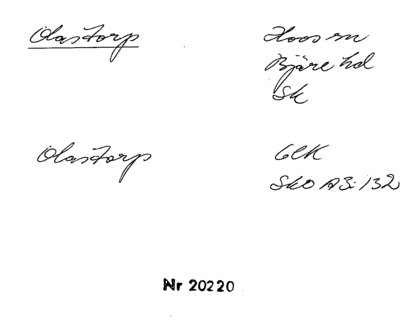 Olastorp
Hoos sn
Bjäre hd
Sk
Olastorp
GEK
SkO A3:132
Nr 20220